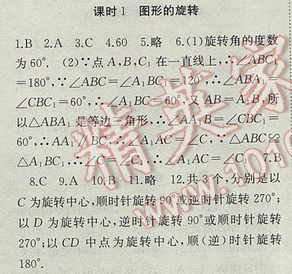 课时1 图形的旋转
1.B 2.A 3.C 4.60 5.略 6.(1)旋转角的度数
为60°. (2)∵点A,B,C₁在一直线上,∴∠ABC₁
=180°,∵∠ABC=∠A₁BC₁=120°∴∠ABA₁=
∠CBC₁=60°,∴∠A₁BC=60°.又AB=A₁B,所
以△ABA₁是等边三角形,∴∠AA₁B=∠CBC₁=
60°,∴AA₁∥BC,∴∠A₁AC=∠C. ∵△ABC≌
△A₁BC₁,∴∠C=∠C₁,∴∠A₁AC=∠C₁ 7.B
8.C 9.A 10.B 11.略 12.共3个,分别是以
C为旋转中心,顺时针旋转90°或逆时针旋转270°;
以D为旋转中心,逆时针旋转90°或顺时针旋转
270°;以CD中点为旋转中心,顺(逆)时针旋转
180°.